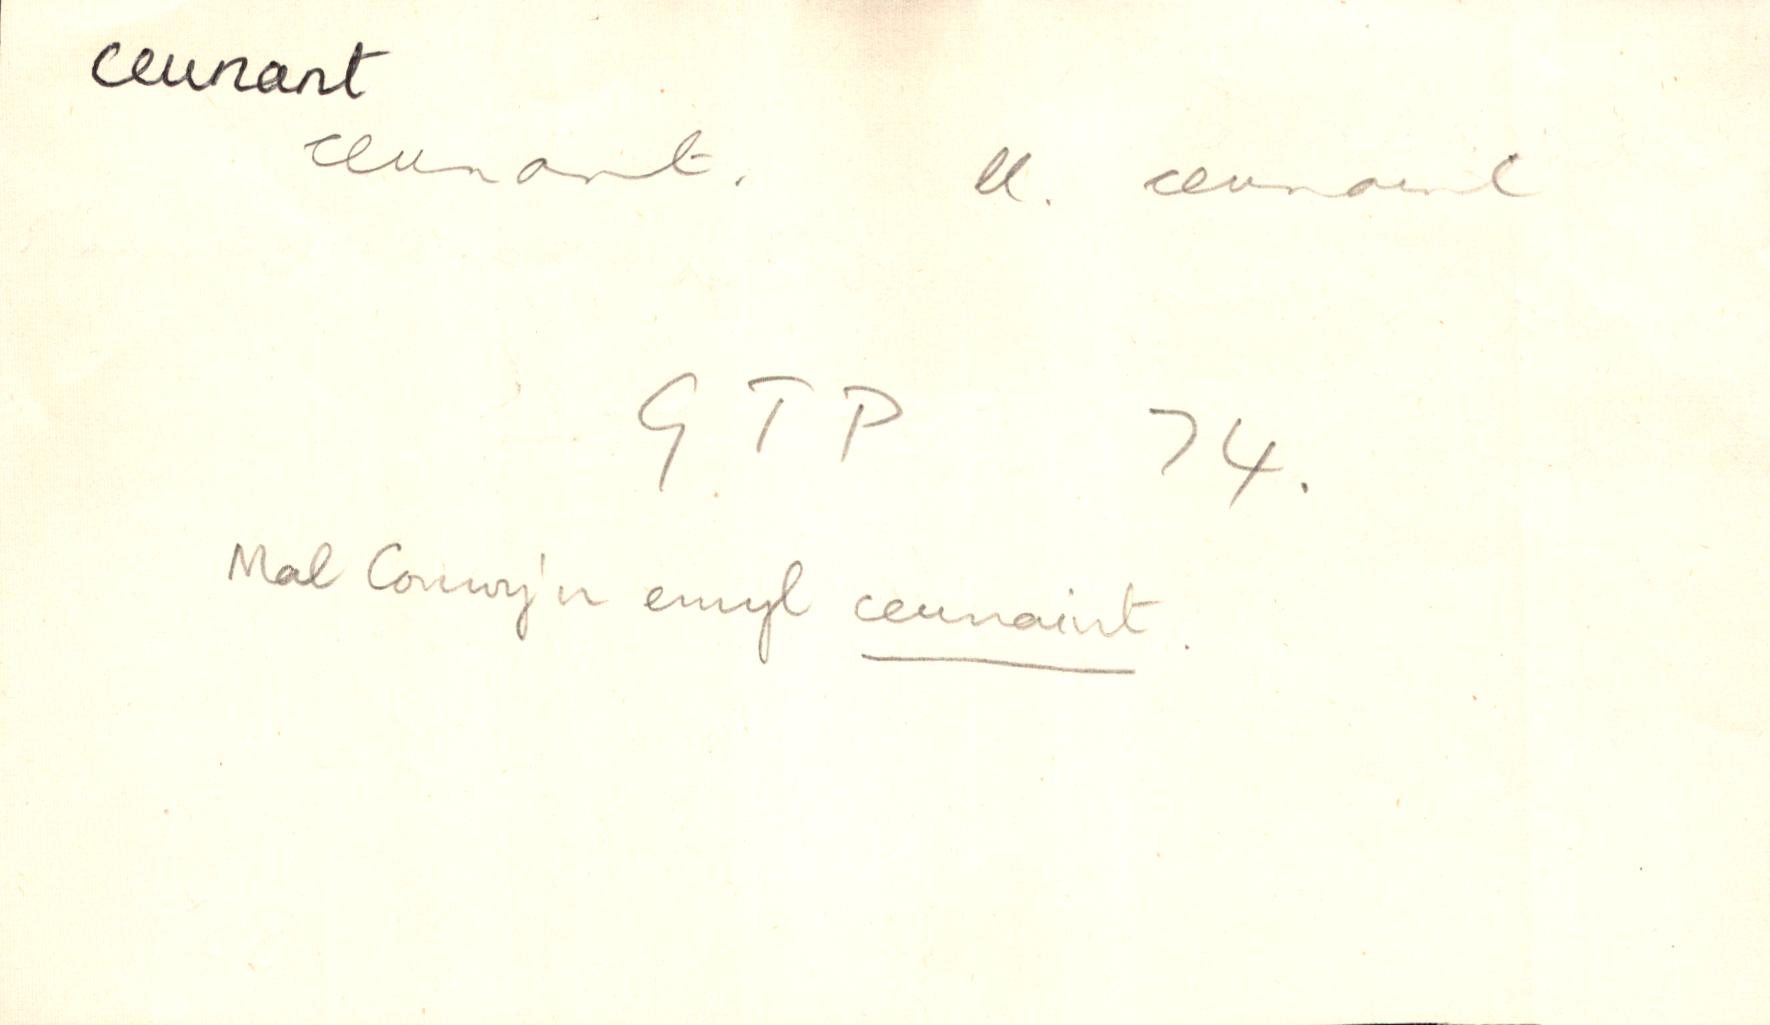 ceunant
ceunant. ll. ceunaint
GTP 74.
Mal Conwy'n emyl ceunaint.